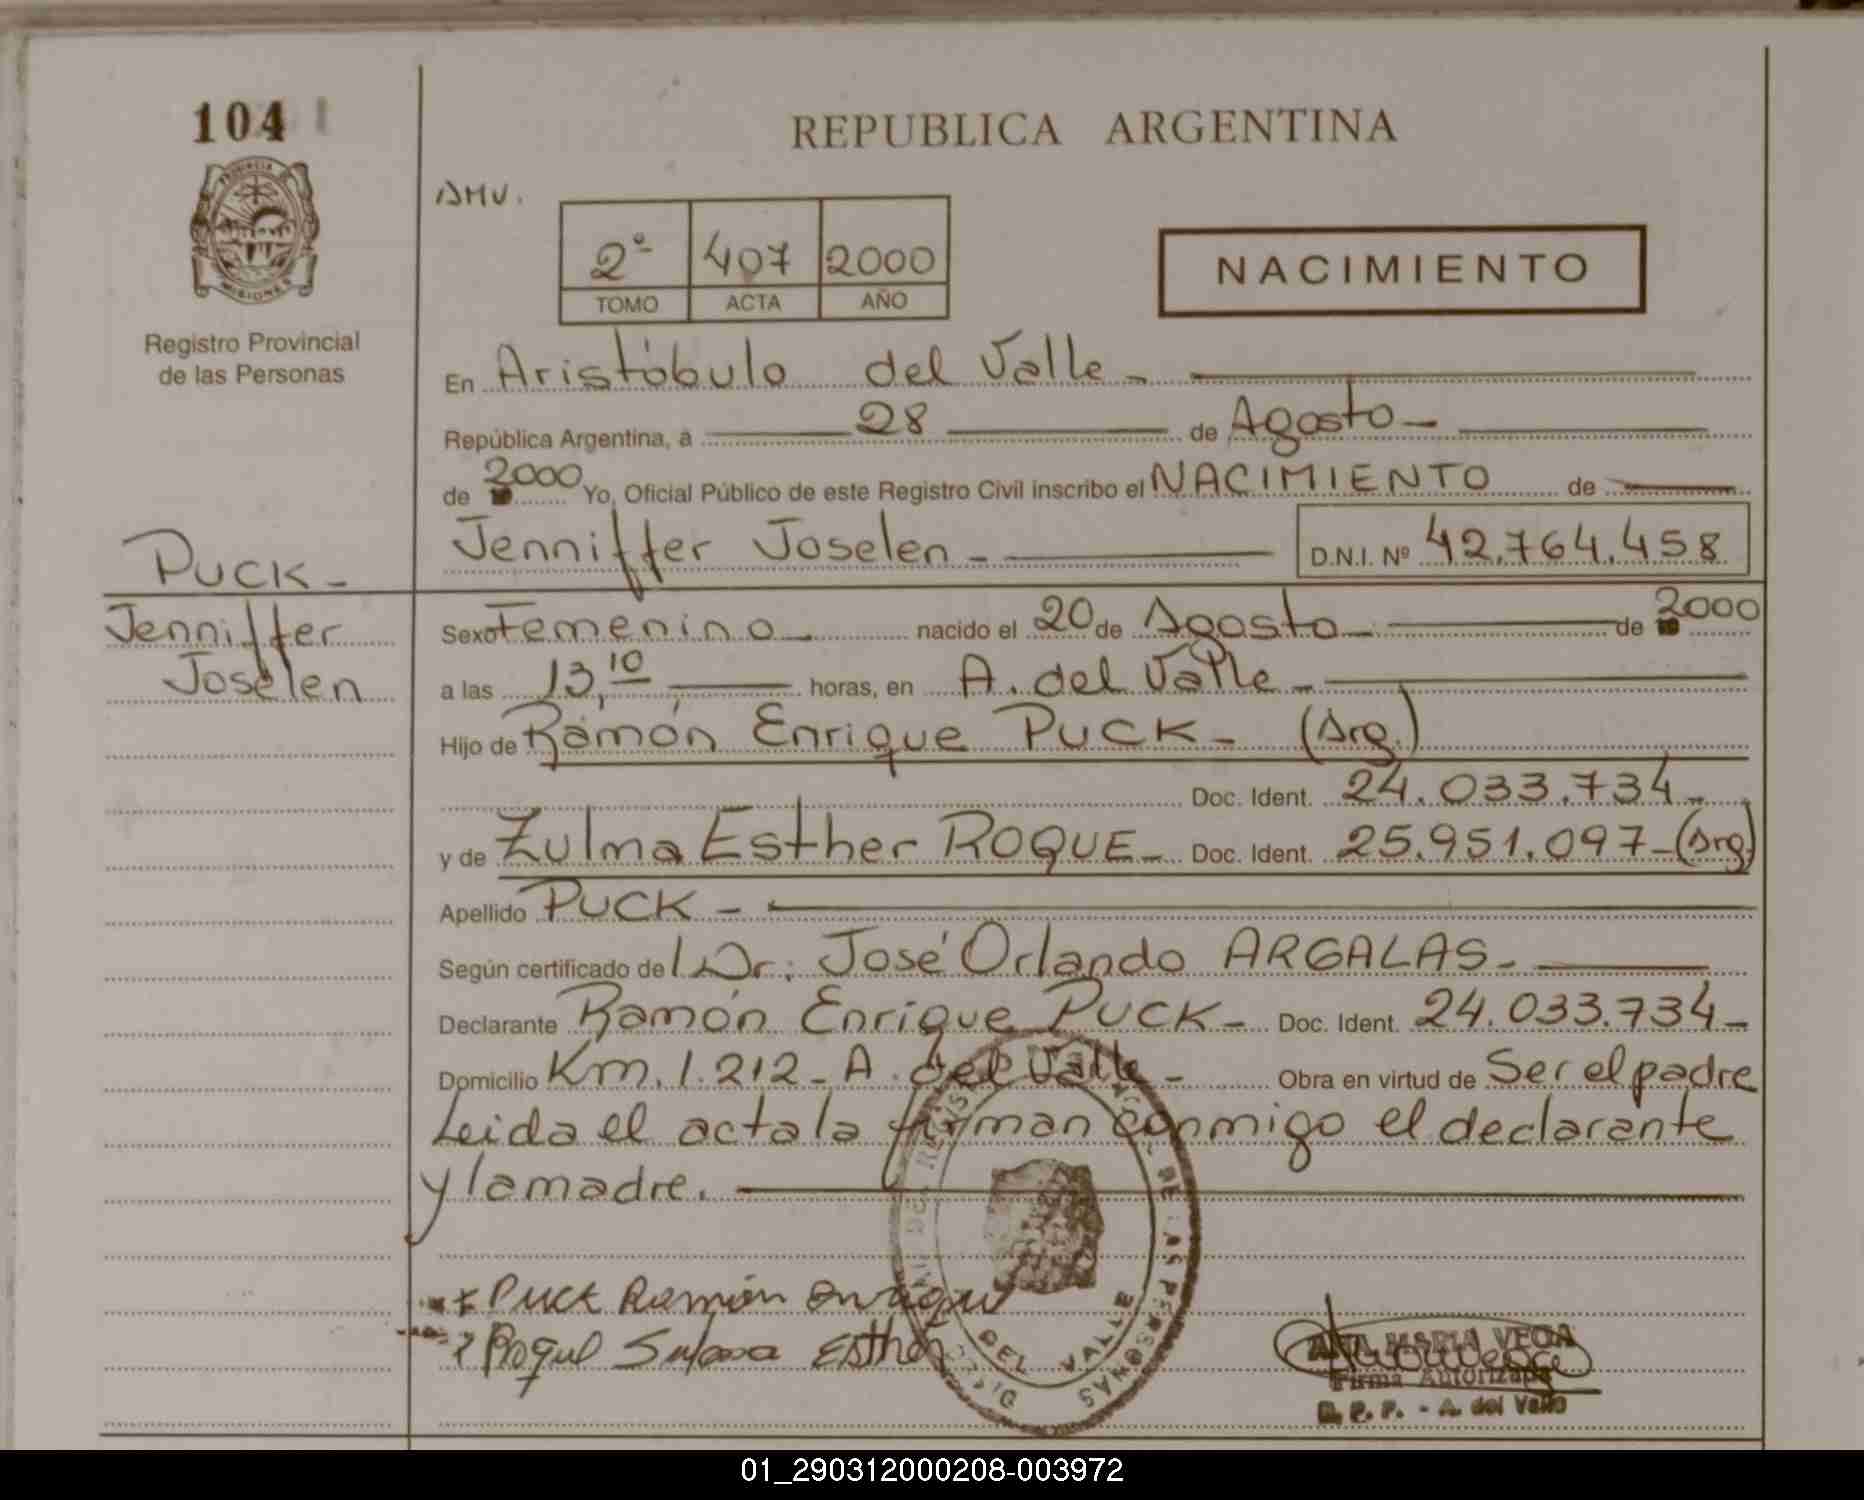 104
PROVINCIA DE
MISIONES
Registro Provincial
de las Personas
REPUBLICA ARGENTINA
AMV.
2º 407 2000
TOMO ACTA AÑO
NACIMIENTO
En Aristóbulo del Valle -
República Argentina, a 28 de Agosto -
de 2000 Yo, Oficial Público de este Registro Civil inscribo el NACIMIENTO de
Jenniffer Joselen - D.N.I. Nº 42.764.458
PUCK -
Jenniffer
Joselen
Sexo Femenino - nacido el 20 de Agosto - de 2000
a las 13,10 horas, en A. del Valle -
Hijo de Ramón Enrique PUCK - (Arg.)
Doc. Ident. 24.033.734 -
y de Zulma Esther ROQUE - Doc. Ident. 25.951.097 - (Arg.)
Apellido PUCK -
Según certificado de l Dr: José Orlando ARGALAS -
Declarante Ramón Enrique PUCK - Doc. Ident. 24.033.734 -
Domicilio Km. 1.212 - A. del Valle - Obra en virtud de Ser el padre
Leida el acta la firman conmigo el declarante
y la madre.
Puck Ramón Enrique
Roque Sulma Esther
DE LAS PERSONAS
DEL VALLE
ANA MARIA VEGA
Firma Autorizada
R. P. P. - A. del Valle
01_290312000208-003972